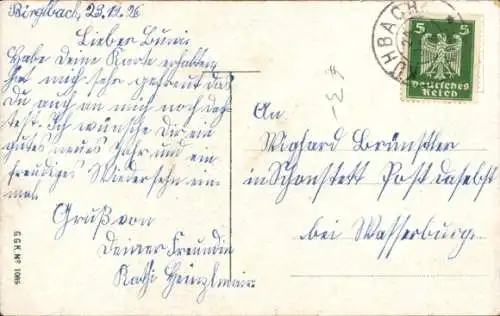 Birglbach, 23.12.26
Lieber Buwi.
Habe deine Karte erhalten
hat mich sehr gefreut das
du auch an mich noch dach-
test. Ich wünsche Dir ein
gutes neues Jahr und ein
freudiges Wiedersehn ein-
mal.
Gruß von
Deiner Freundin
Kathi Heinzlmair.
BACH
5 5
Deutsches
Reich
An
Righard Brünstler
in Schonstett Post daselbst
bei Wasserburg.
G.G.K. No 1085